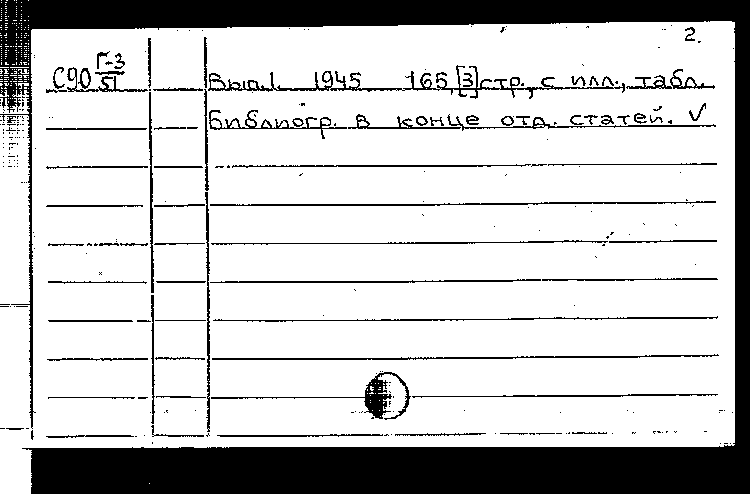 2.
С90 Г-3/51 Вып.1. 1945 165,[3]стр., с илл., табл.
Библиогр. в конце отд. статей. ✓